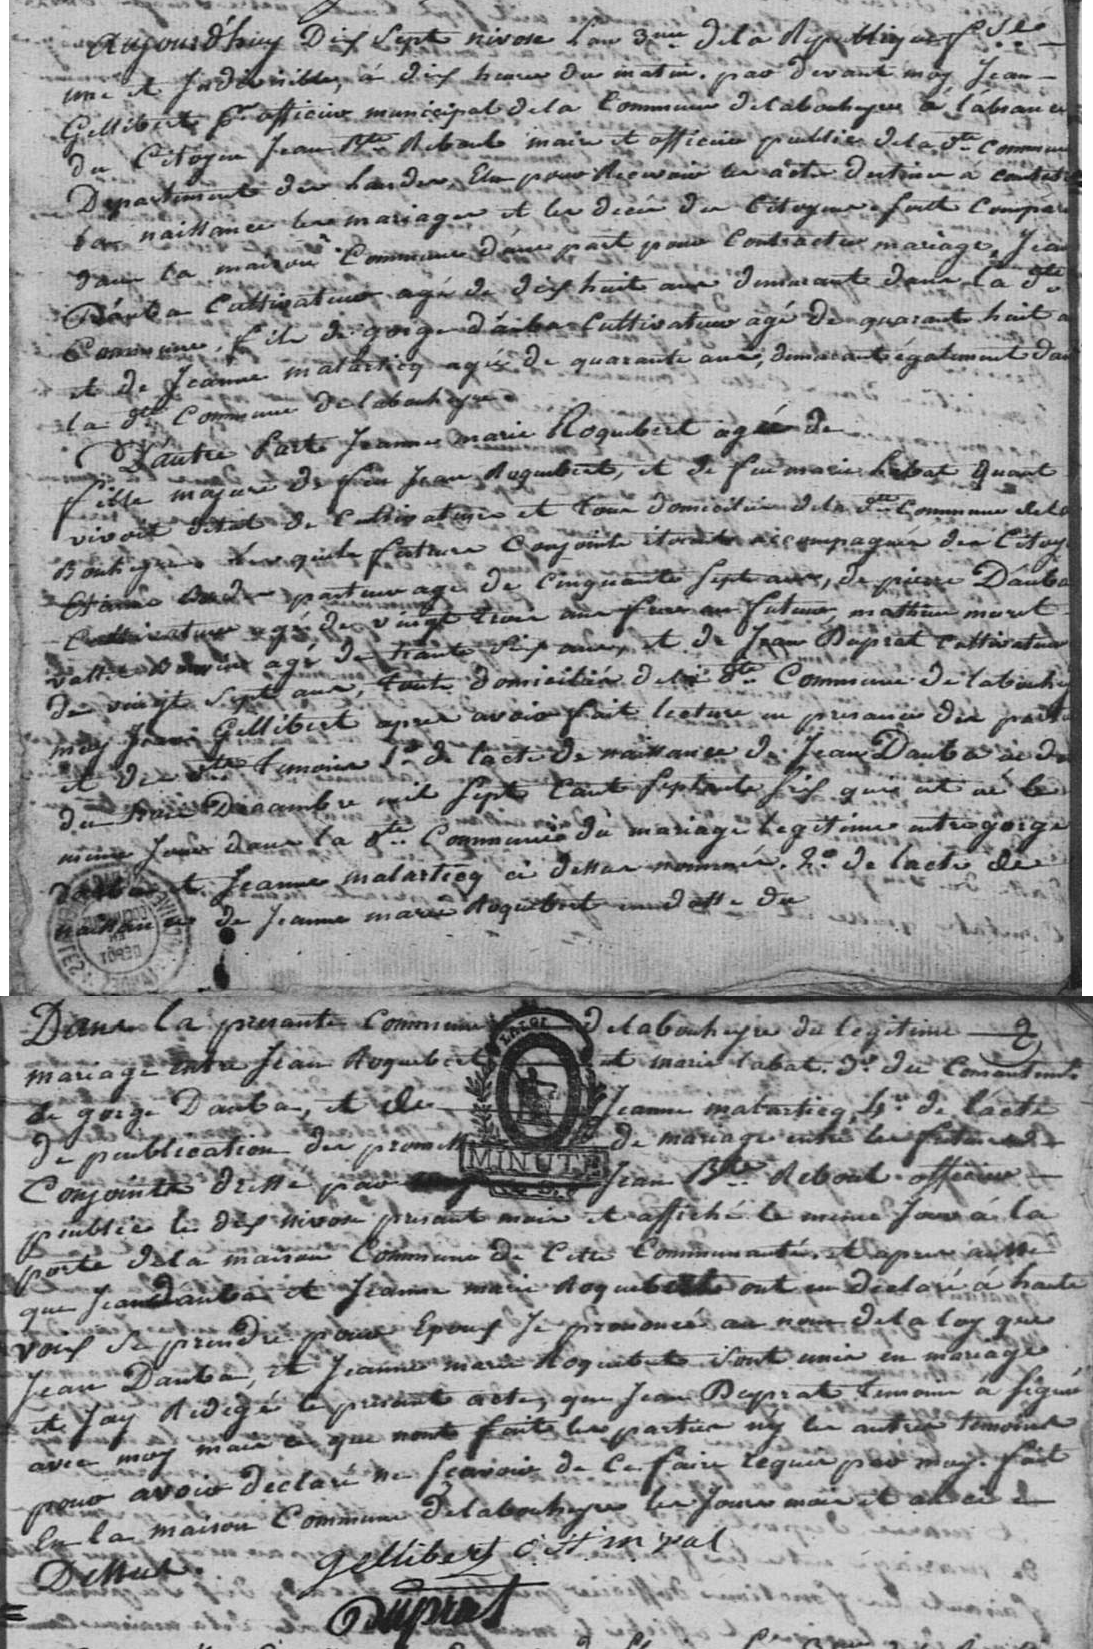 Aujourd'huy Dix Sept nivose Lan 3.me de la Republique f.se
une et Indivisible, à dix heures du matin. par devant moy Jean
Gellibert p.r officier municipal de la Commune de labouheyre à l'absance
du Citoyen Jean B.te Reboul maire et officier public de la d.te Commune
Departement des Landes, Elu pour Recevoir les actes destines à constater
les naissances les mariages et les décés des Citoyens, sont Comparu
dans la maison Commune d'une part pour Contracter mariage, Jean
Dauba Cultivateur agé de dix huit ans demurant dans la d.te
Commune, fils de gorge dauba Cultivateur agé de quarante huit a
et de Jeanne malarticq agée de quarante ans, demurant également dan
la d.te Commune de labouheyre.
D'autre Part Jeanne marie Roquebert agée de
fille majure de feu Jean Roquebert, et de feu marie Labat quant
vivoit d'etat de Cultivateur et tous domiciliés de la d.te Commune de la
Bouheyre lesquels futurs Conjoints étoient accompagnés des Citoy
Etienne partuvage de Cinquante Sept ans, de pierre Dauba
Cultivateur agé de vingt trois ans frere au futur, mathieu
agé de trante six ans, et de Jean Duprat Cultivateur
de vingt sept ans, touts domiciliés de la d.te Commune de labouhe
moy Jean Gellibert apres avoir fait lecture en presance des partie
et des d.ts temoins 1.o de l'acte de naissance de Jean Dauba en d
du trois Decambre mil Sept Cent Septante six qui est né le
meme Jour dans la d.te Commune du mariage legitime entre gorge
Dauba et Jeanne malarticq ci dessus nommés. 2.o de l'acte de
naissance de Jeanne marie Roquebert en datte du
Dans la presante Commune de labouheyre du legitime 2
mariage entre Jean Roquebert et marie labat. 3.o du Consantem.t
de gorge Dauba, et de Jeanne malarticq, 4.o de l'acte
de publication des promesses de mariage entre les futurs
Conjoints dressé par Jean B.te Reboul officier
public le dix nivose presant mois et affiché le meme Jour à la
porte de la maison Commune de Cette Communauté. et apres aussi
que Jean Dauba et Jeanne marie Roquebert ont eu declaré à haute
voix se prendre pour Epoux Je prononcé au nom de la loy que
Jean Dauba, et Jeanne marie Roquebert sont unis en mariage
et Jay Redigé le presant acte, que Jean Duprat temoin à signé
avec moy mais ce que nont fait les parties n'y les autres temoins
pour avoir declaré ne sçavoir de Ce faire requis par moy. fait
En la maison Commune de labouheyre les Jours mois et an ci
Dessus.
Gellibert off m pal
Duprat
MINUTE